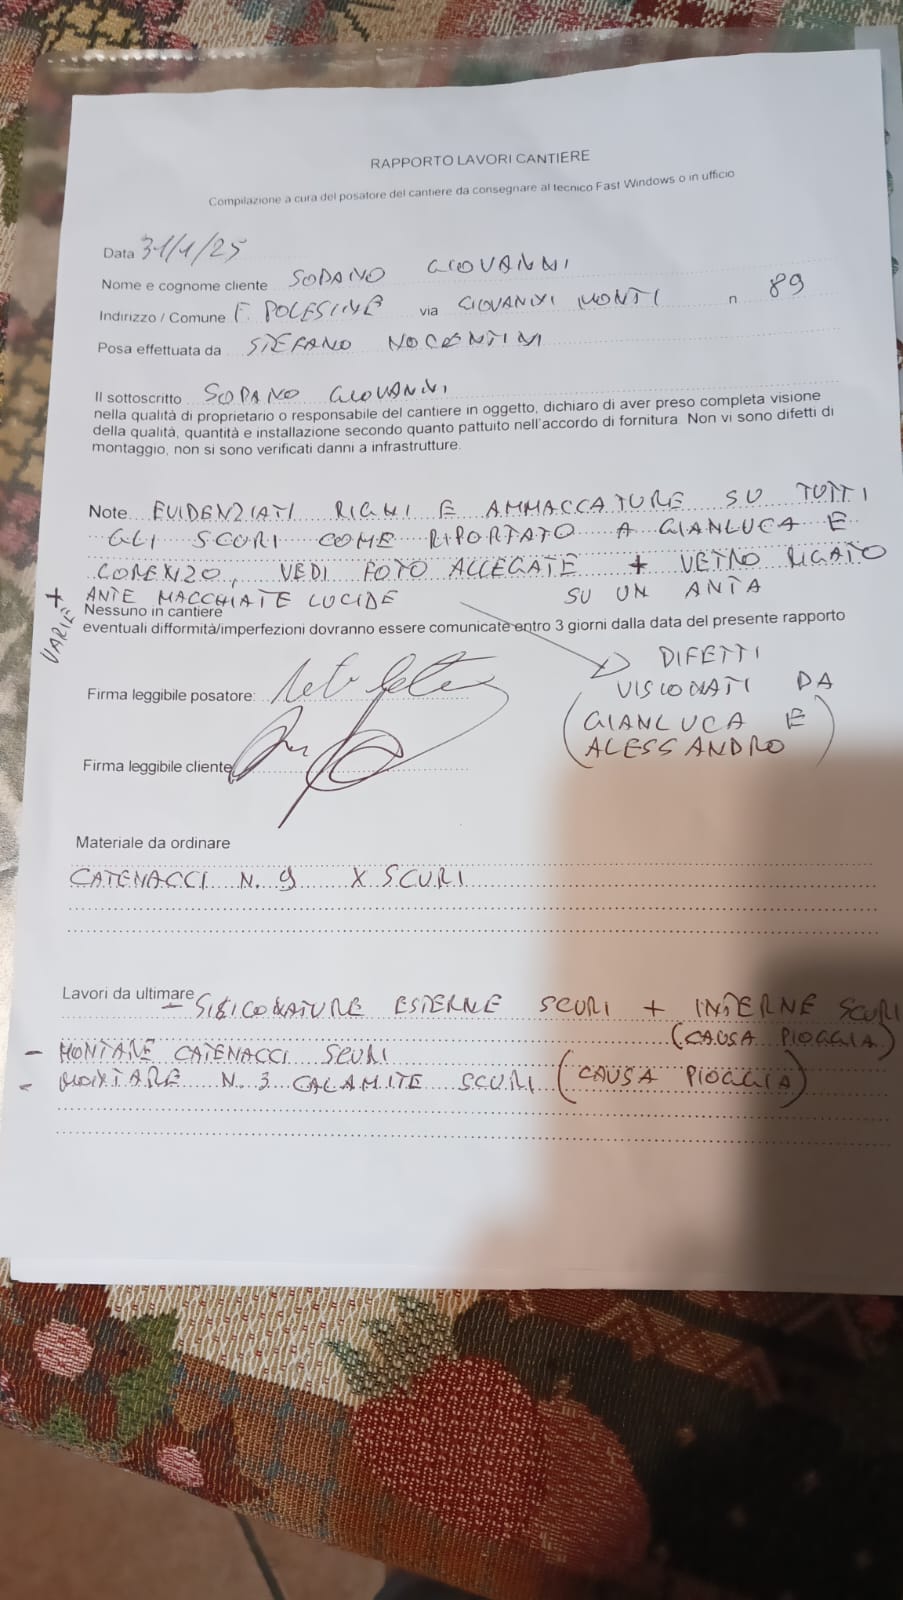 RAPPORTO LAVORI CANTIERE
Compilazione a cura del posatore del cantiere da consegnare al tecnico Fast Windows o in ufficio
Data 31/1/25
Nome e cognome cliente SODANO GIOVANNI
Indirizzo / Comune F. POLESINE via GIOVANNI MONTI n 89
Posa effettuata da STEFANO NOCENTINI
Il sottoscritto SODANO GIOVANNI
nella qualità di proprietario o responsabile del cantiere in oggetto, dichiaro di aver preso completa visione
della qualità, quantità e installazione secondo quanto pattuito nell'accordo di fornitura Non vi sono difetti di
montaggio, non si sono verificati danni a infrastrutture.
Note EVIDENZIATI RIGNI E AMMACCATURE SU TUTTI
GLI SCURI COME RIPORTATO A GIANLUCA E
LORENZO, VEDI FOTO ALLEGATE + VETRO RIGATO
+ ANTE MACCHIATE LUCIDE SU UN ANTA
VARIE
Nessuno in cantiere
eventuali difformità/imperfezioni dovranno essere comunicate entro 3 giorni dalla data del presente rapporto
DIFETTI
VISIONATI DA
(GIANLUCA E
ALESSANDRO)
Firma leggibile posatore:
Firma leggibile cliente
Materiale da ordinare
CATENACCI N. 9 X SCURI
Lavori da ultimare
- SILICONATURE ESTERNE SCURI + INTERNE SCURI
(CAUSA PIOGGIA)
- MONTARE CATENACCI SCURI
- MONTARE N. 3 CALAMITE SCURI (CAUSA PIOGGIA)